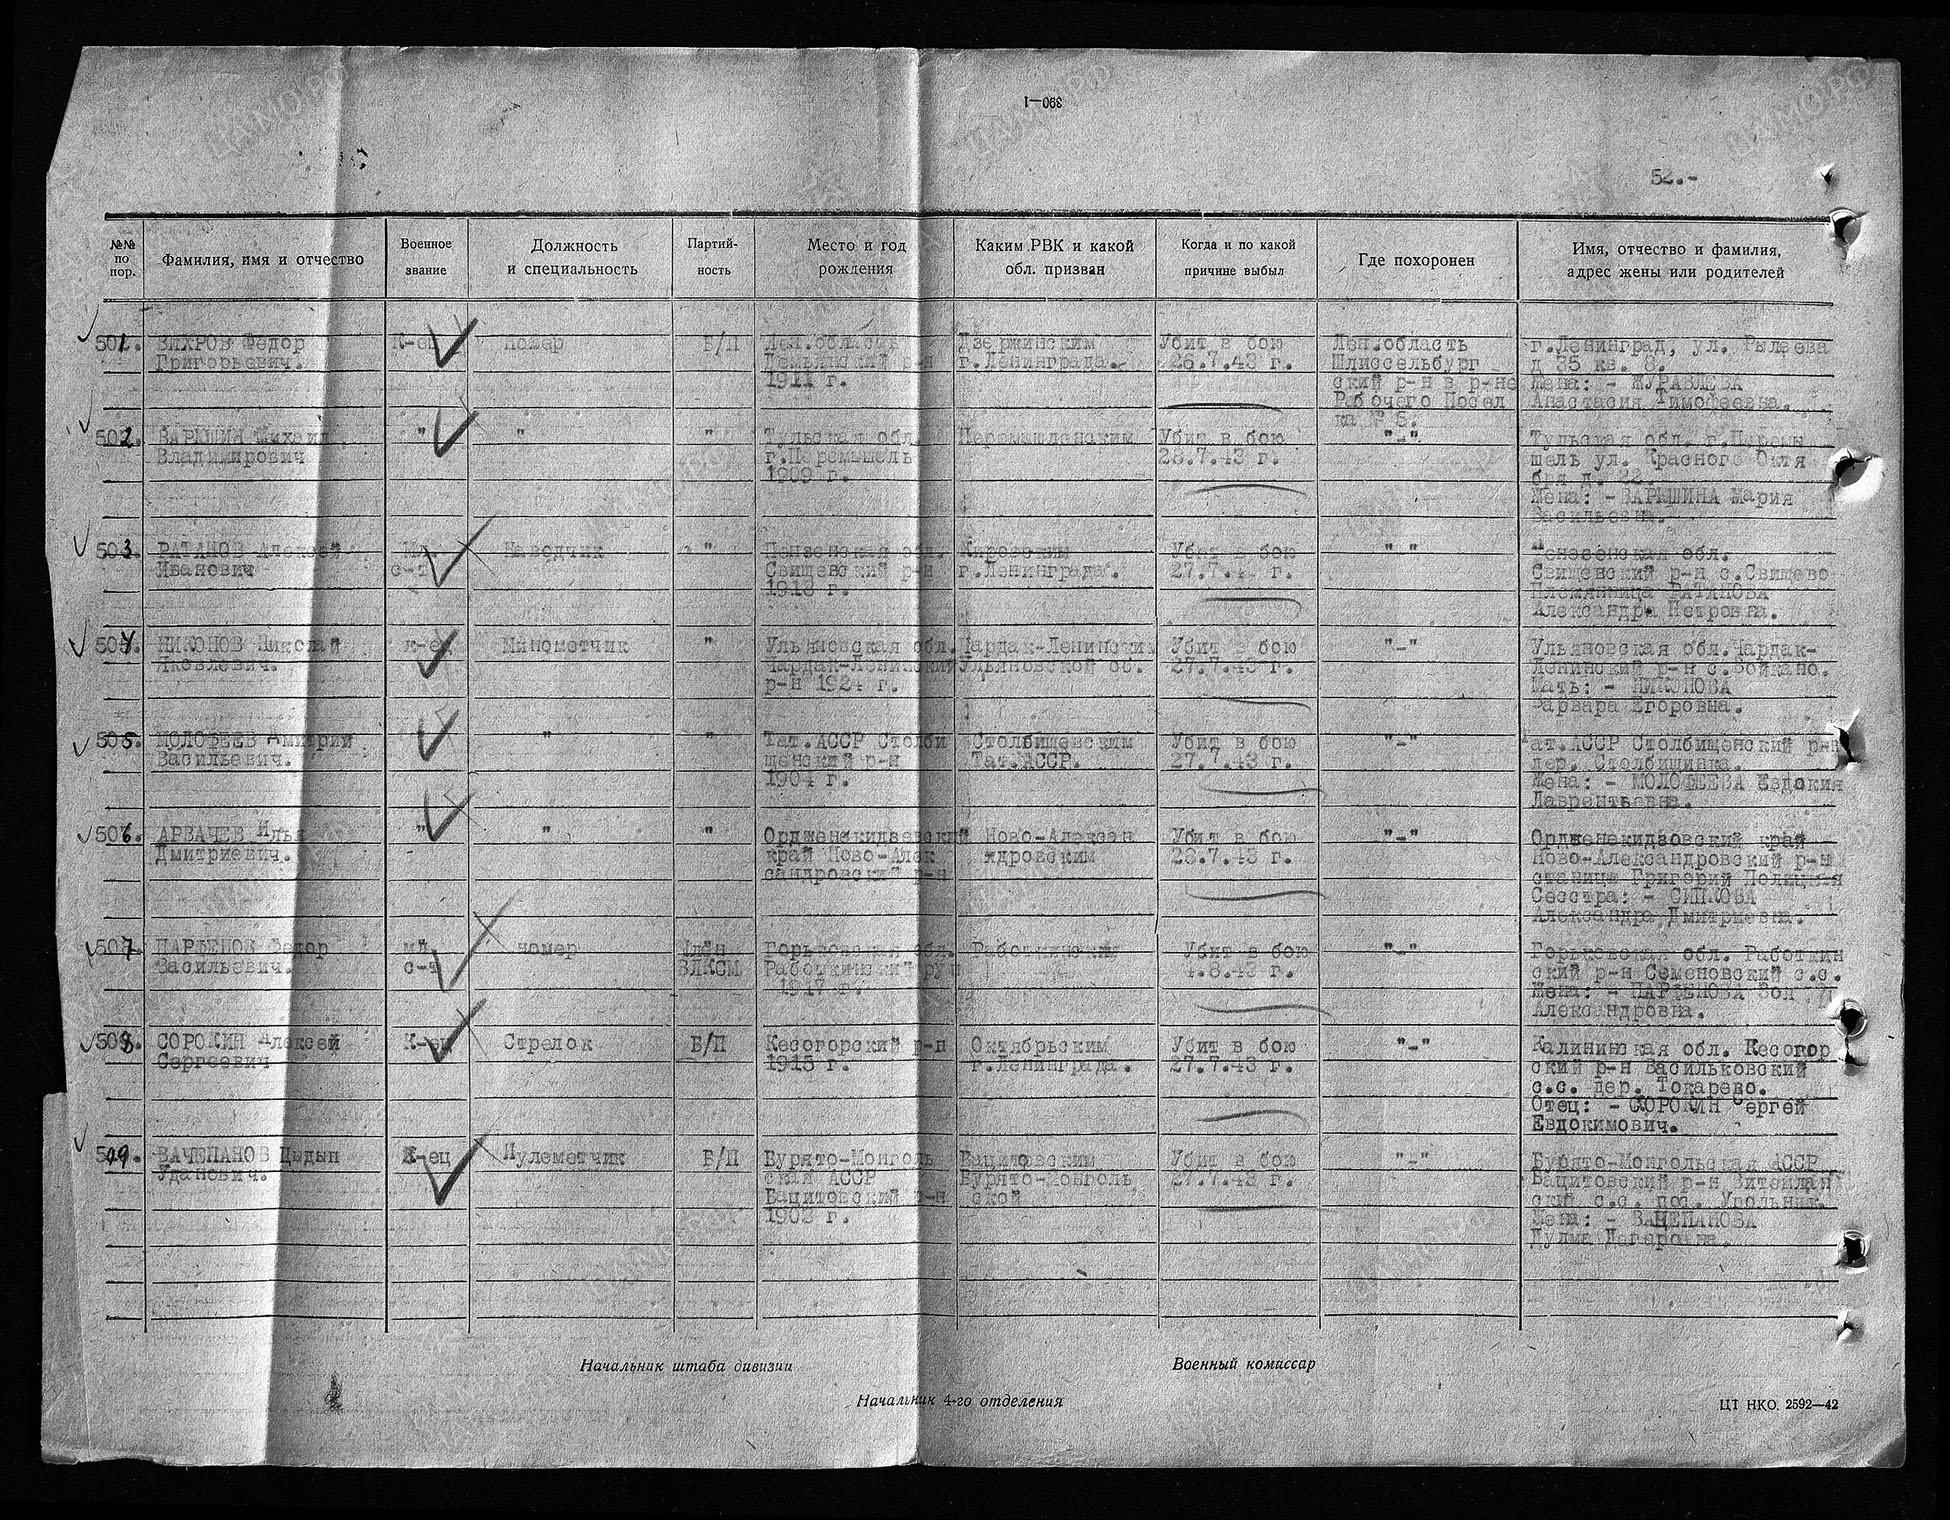 390—1
52.-
№№ по пор.
Фамилия, имя и отчество
Военное звание
Должность и специальность
Партий-ность
Место и год рождения
Каким РВК и какой обл. призван
Когда и по какой причине выбыл
Где похоронен
Имя, отчество и фамилия, адрес жены или родителей
501.
ВИХРОВ Федор
Григорьевич.
К-ец
номер
Б/П
Лен.область
р-н
1911 г.
Дзержинским
г.Ленинграда.
Убит в бою
26.7.43 г.
Лен.область
Шлиссельбург
ский р-н в р-не
Рабочего Посел
ка № 5.
г.Ленинград, ул. Рылеева
д 35 кв. 8.
Жена: - ЖУРАВЛЕВА
Анастасия Тимофеевна.
502.
ВАРЫШИН Михаил
Владимирович
"
"
"
Тульская обл.
г.Перемышель
1909 г.
Перемышленским
Убит в бою
28.7.43 г.
"-"
Тульская обл. г.Перемы
шель ул. Красного Октя
бья д. 22.
Жена: -ВАРЫШИНА Мария
Васильевна.
503.
РАТАНОВ Алексей
Иванович
Мл.
с-т
Наводчик
"
Пензенская обл.
Свищевский р-н
1918 г.
Кировским
г.Ленинграда.
Убит в бою
27.7.43 г.
"-"
Пензенская обл.
Свищевский р-н с.Свищево
Племянница РАТАНОВА
Александра Петровна.
504.
НИКОНОВ Николай
Яковлевич.
к-ец
Минометчик
"
Ульяновская обл.
Чардак-Ленинский
р-н 1924 г.
Чардак-Ленински
Ульяновской об.
Убит в бою
27.7.43 г.
"-"
Ульяновская обл.Чардак-
Ленинский р-н с.Войкано.
Мать: - НИКОНОВА
Варвара Егоровна.
505.
МОЛОФЕЕВ Дмитрий
Васильевич.
"
"
Тат.АССР Столби
щенский р-н
1904 г.
Столбищевским
Тат.АССР.
Убит в бою
27.7.43 г.
"-"
Тат.АССР Столбищенский р-н
дер. Столбищинка.
Жена: - МОЛОФЕЕВА Евдокия
Лаврентьевна.
506.
АРВАЧЕВ Илья
Дмитриевич.
"
"
"
Ордженекидзевский
край Ново-Алек
сандровский р-н
Ново-Алексан
ндровским
Убит в бою
28.7.43 г.
"-"
Ордженекидзовский край
Ново-Александровский р-н
станица Григорий
Сесстра: - СИПКОВА
Александра Дмитриевна.
507.
ПАРФЕНОВ Федор
Васильевич.
мл.
с-т
номер
Член
ВЛКСМ
Горьковская обл.
Работкинский
1917 г.
Работкинским
Убит в бою
4.8.43 г.
"-"
Горьковская обл. Работкин
ский р-н Семеновский с.с.
Жена: - ПАРФЕНОВА Зоя
Александровна.
508.
СОРОКИН Алексей
Сергеевич
К-ец
Стрелок
Б/П
Кесогорский р-н
1915 г.
Октябрьским
г.Ленинграда.
Убит в бою
27.7.43 г.
"-"
Калининская обл. Кесогор
ский р-н Васильковский
с.с. дер. Токарево.
Отец: - СОРОКИН Сергей
Евдокимович.
509.
ВАЧЕПАНОВ Цыдып
Уданович.
К-ец
Пулеметчик
Б/П
Бурято-Монголь
ская АССР
Вацитовский р-н
1902 г.
Вацитовским
Бурято-Монголь
ской
Убит в бою
27.7.43 г.
"-"
Бурято-Монгольская АССР
Вацитовский р-н Витемлян
ский с.с. пос. Угольник.
Жена: - ВАЧЕПАНОВА
Дулма
Начальник штаба дивизии
Военный комиссар
Начальник 4-го отделения
ЦТ НКО. 2592—42